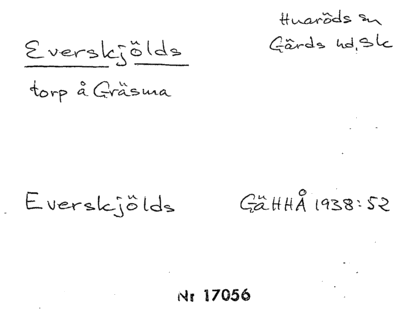 Everskjölds
Huaröds sn
Gärds hd, Sk
torp å Gräsma
Everskjölds
GäHHÅ 1938:52
Nr 17056